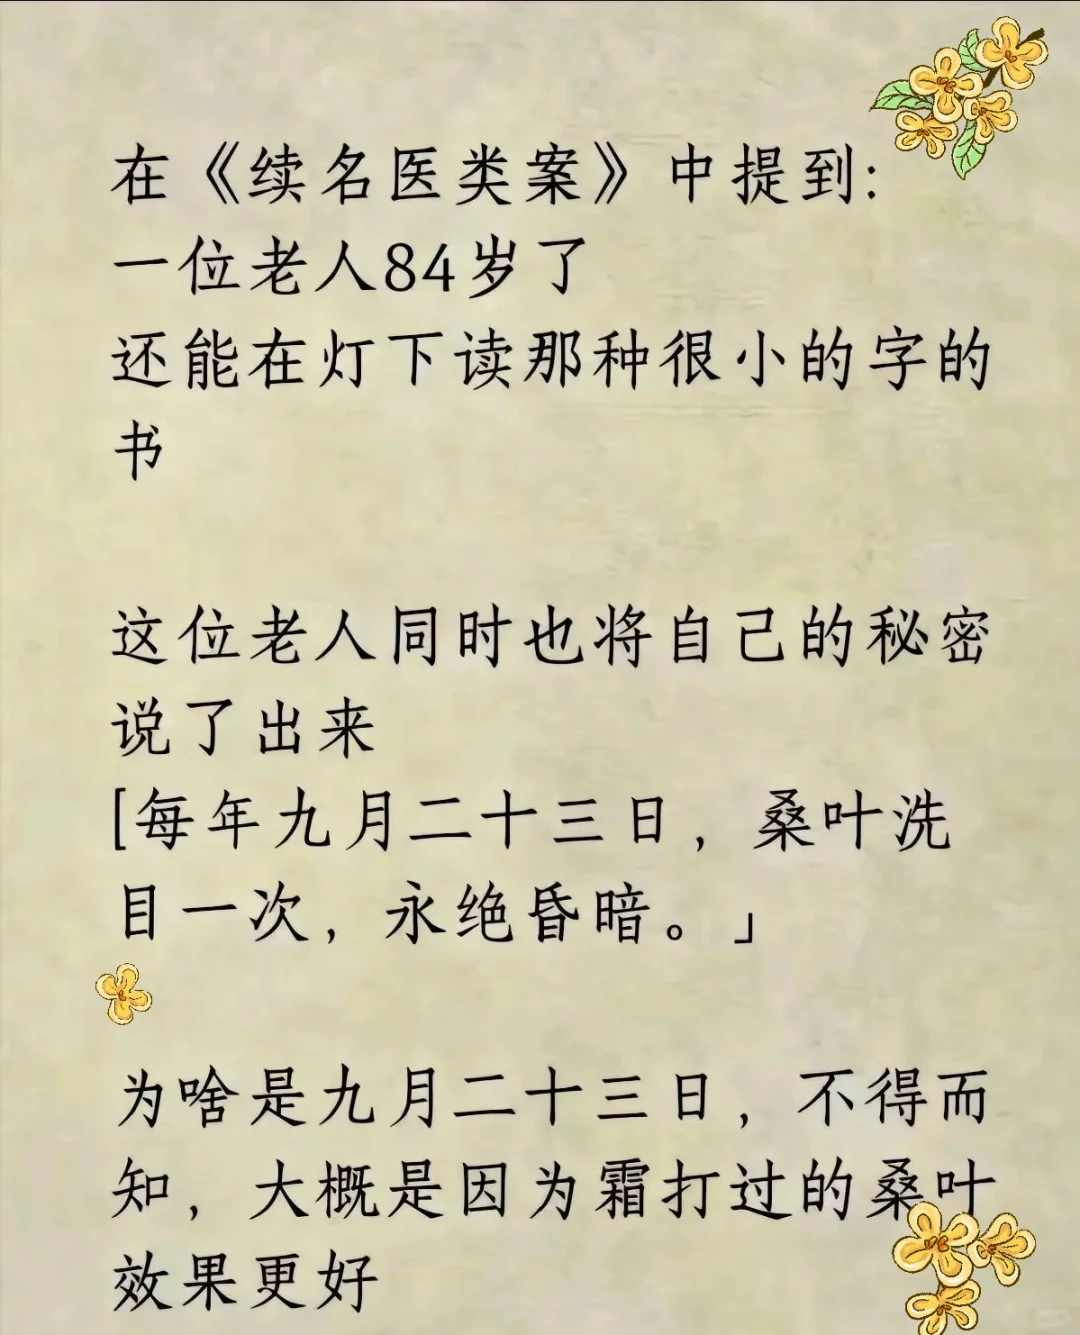 在《续名医类案》中提到:
一位老人84岁了
还能在灯下读那种很小的字的
书
这位老人同时也将自己的秘密
说了出来
[每年九月二十三日，桑叶洗
目一次，永绝昏暗。」
为啥是九月二十三日，不得而
知，大概是因为霜打过的桑叶
效果更好